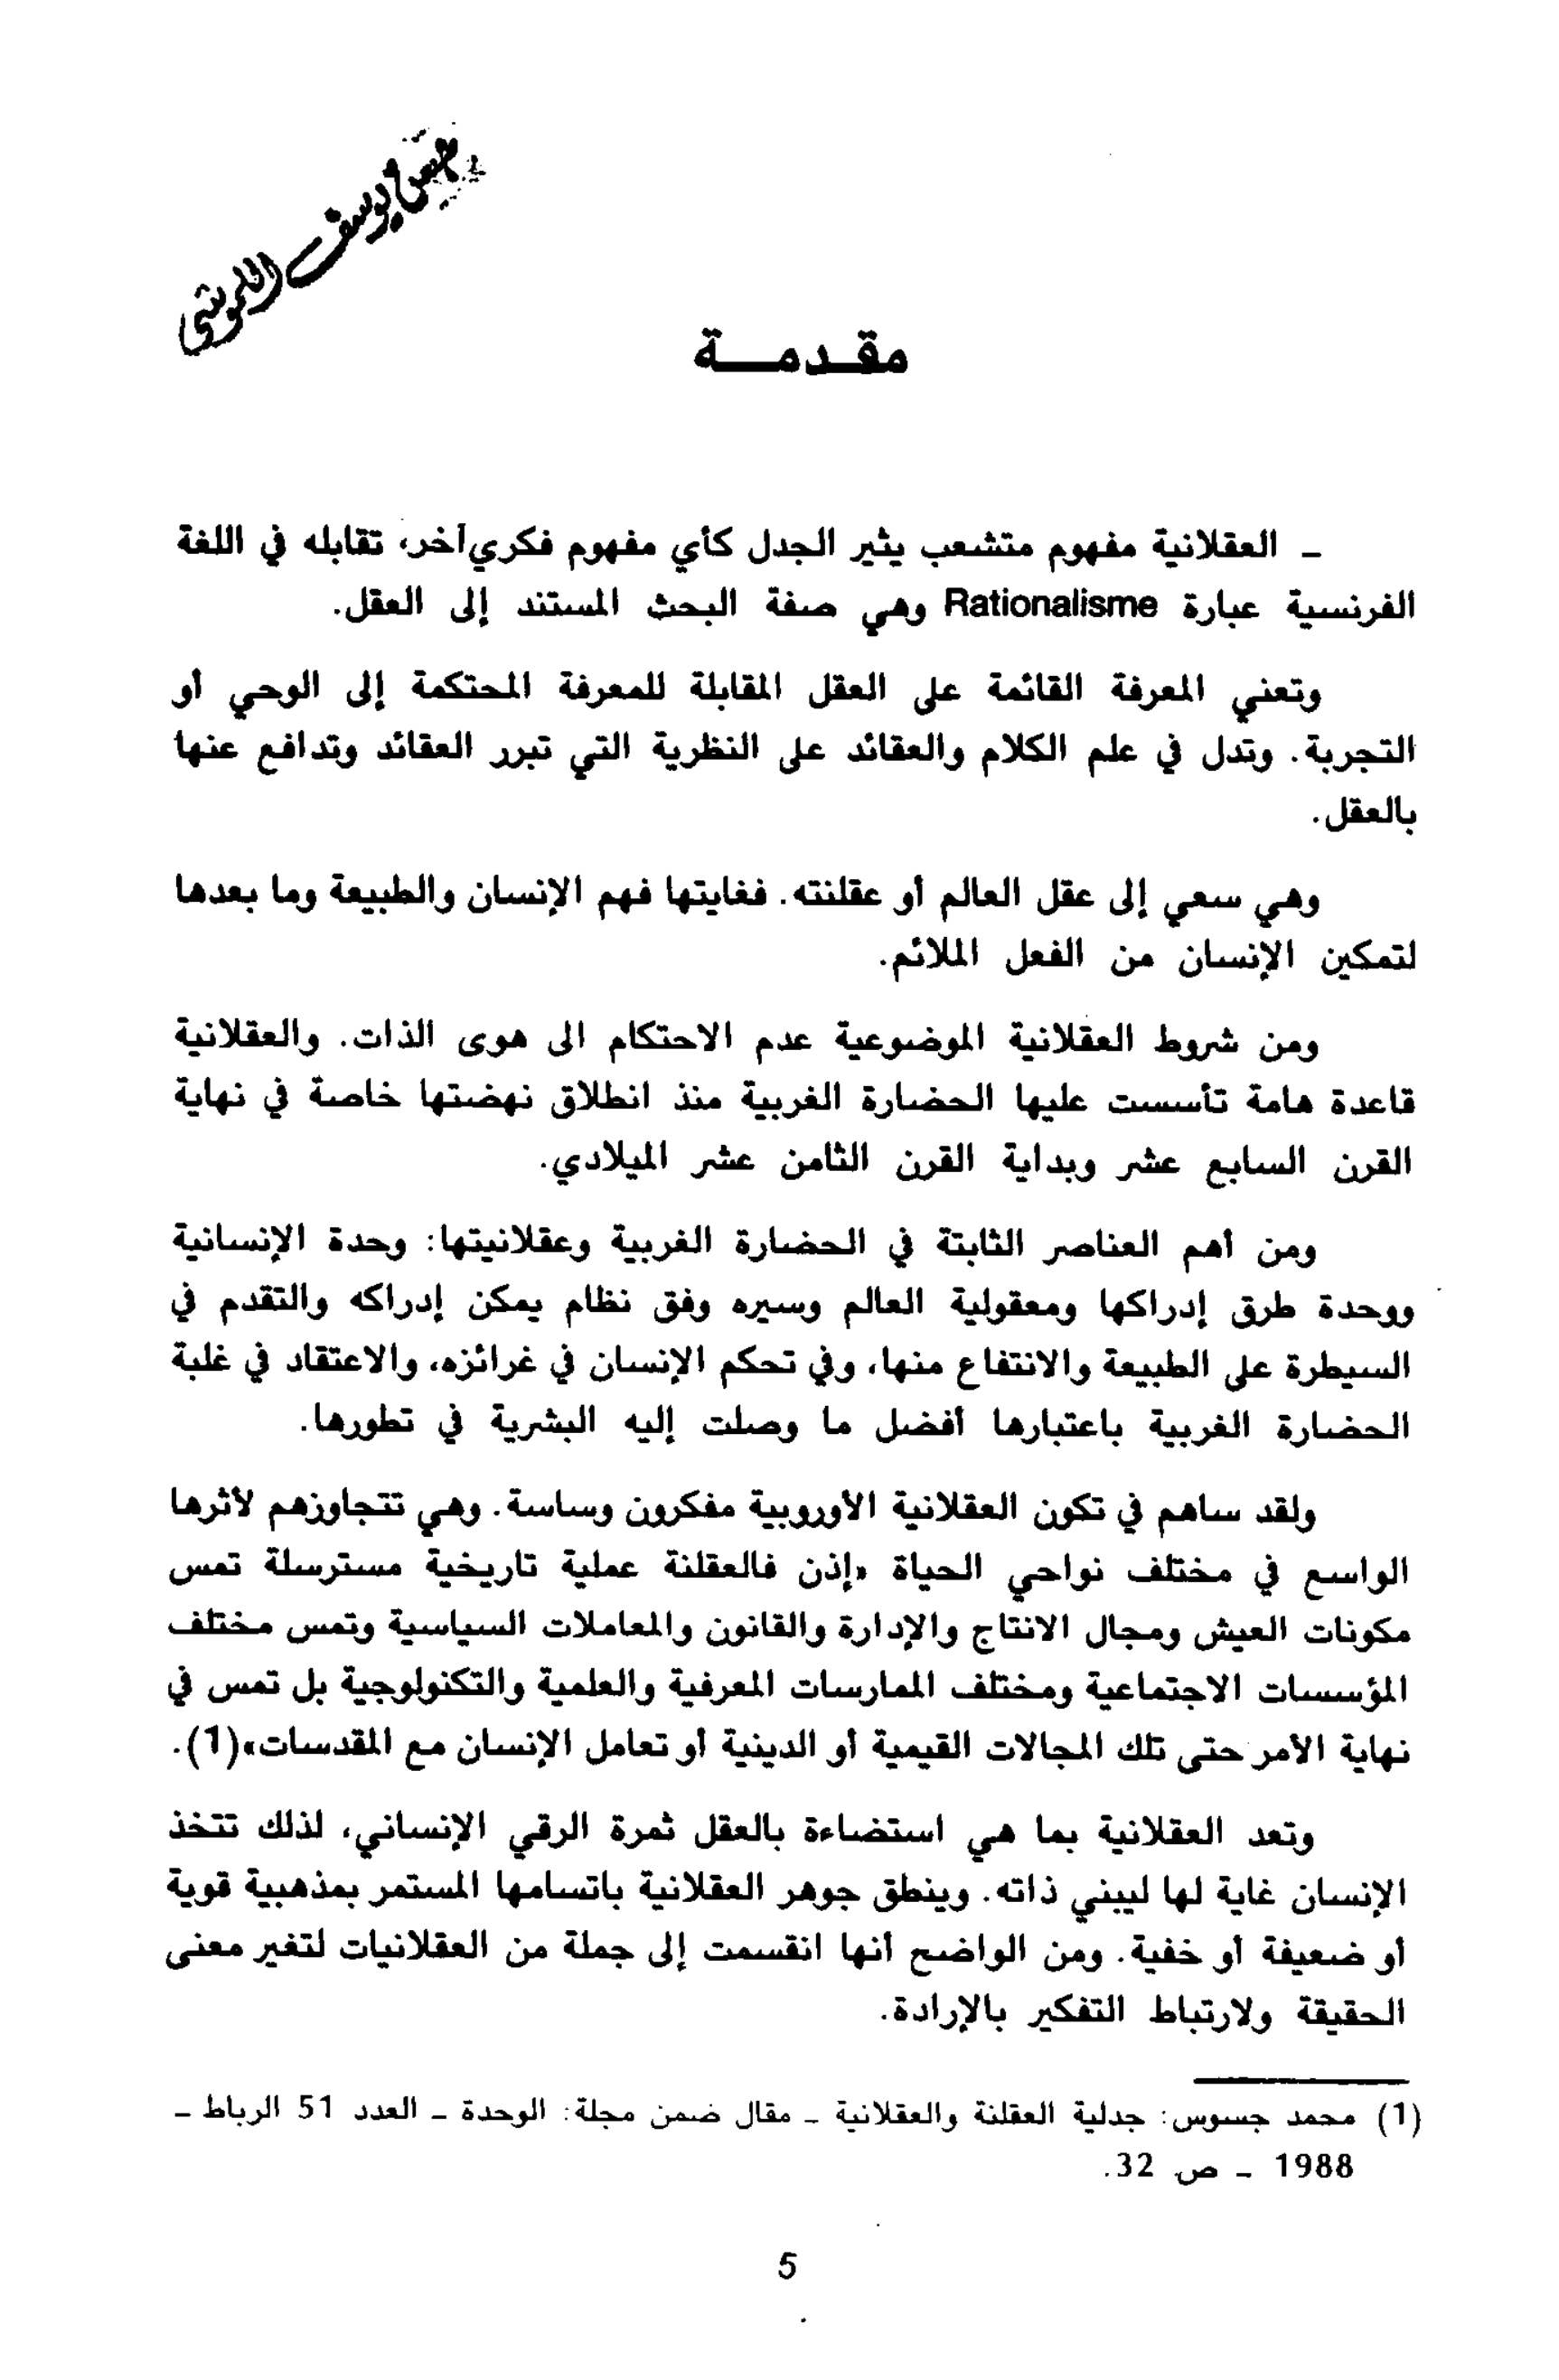 يوسف
مقدمة
- العقلانية مفهوم متشعب يثير الجدل كأي مفهوم فكري آخر، تقابله في اللغة
الفرنسية عبارة Rationalisme وهي صفة البحث المستند إلى العقل.
وتعني المعرفة القائمة على العقل المقابلة للمعرفة المحتكمة إلى الوحي أو
التجربة. وتدل في علم الكلام والعقائد على النظرية التي تبرر العقائد وتدافع عنها
بالعقل.
وهي سعي إلى عقل العالم أو عقلنته. فغايتها فهم الإنسان والطبيعة وما بعدها
لتمكين الإنسان من الفعل الملائم.
ومن شروط العقلانية الموضوعية عدم الاحتكام الى هوى الذات. والعقلانية
قاعدة هامة تأسست عليها الحضارة الغربية منذ انطلاق نهضتها خاصة في نهاية
القرن السابع عشر وبداية القرن الثامن عشر الميلادي.
ومن أهم العناصر الثابتة في الحضارة الغربية وعقلانيتها: وحدة الإنسانية
ووحدة طرق إدراكها ومعقولية العالم وسيره وفق نظام يمكن إدراكه والتقدم في
السيطرة على الطبيعة والانتفاع منها، وفي تحكم الإنسان في غرائزه، والاعتقاد في غلبة
الحضارة الغربية باعتبارها أفضل ما وصلت إليه البشرية في تطورها.
ولقد ساهم في تكون العقلانية الأوروبية مفكرون وساسة. وهي تتجاوزهم لأثرها
الواسع في مختلف نواحي الحياة «إذن فالعقلنة عملية تاريخية مسترسلة تمس
مكونات العيش ومجال الانتاج والإدارة والقانون والمعاملات السياسية وتمس مختلف
المؤسسات الاجتماعية ومختلف الممارسات المعرفية والعلمية والتكنولوجية بل تمس في
نهاية الأمر حتى تلك المجالات القيمية أو الدينية أو تعامل الإنسان مع المقدسات»(1).
وتعد العقلانية بما هي استضاءة بالعقل ثمرة الرقي الإنساني، لذلك تتخذ
الإنسان غاية لها ليبني ذاته. وينطق جوهر العقلانية باتسامها المستمر بمذهبية قوية
أو ضعيفة أو خفية. ومن الواضح أنها انقسمت إلى جملة من العقلانيات لتغير معنى
الحقيقة ولارتباط التفكير بالإرادة.
(1) محمد جسوس: جدلية العقلنة والعقلانية - مقال ضمن مجلة: الوحدة - العدد 51 الرباط -
1988 - ص 32.
5